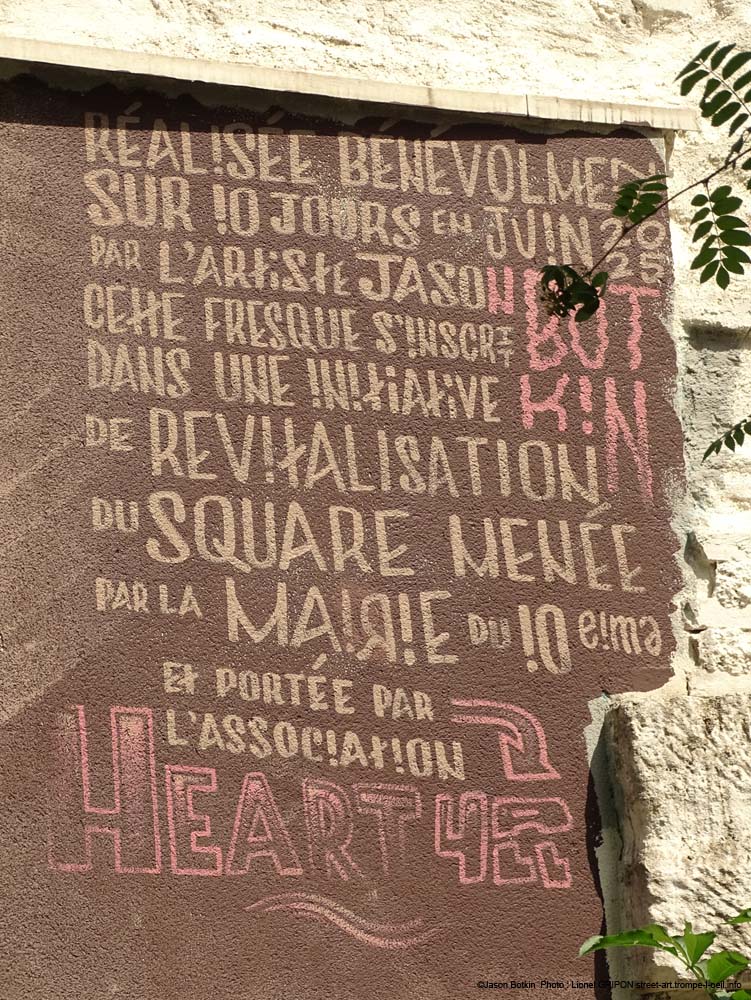 RÉALISÉE BÉNÉVOLMENT
SUR 10 JOURS EN JUIN 2025
PAR L'ARTISTE JASON BOTKIN
CETTE FRESQUE S'INSCRIT
DANS UNE INITIATIVE
DE REVITALISATION
DU SQUARE MENÉE
PAR LA MAIRIE DU 10 eime
Et PORTÉE PAR
L'ASSOCIATION
HEART 4 ALL
©Jason Botkin Photo : Lionel GRIPON-street-art.trompe-l-oeil.info